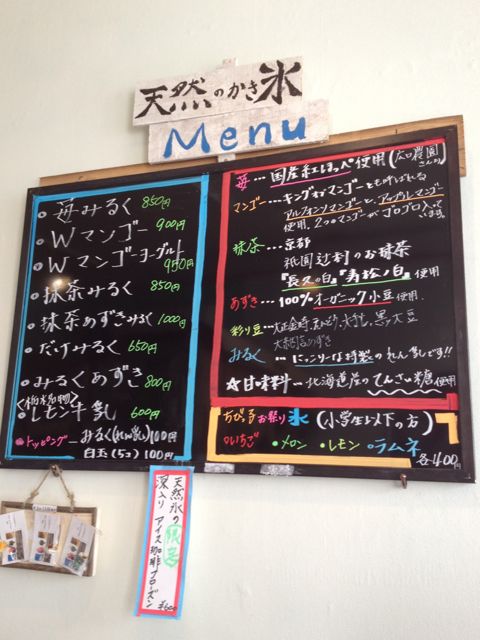 天然のかき氷
Menu
苺みるく 850円
Wマンゴー 900円
Wマンゴーヨーグルト 950円
抹茶みるく 850円
抹茶あずきみるく 1000円
だけみるく 650円
みるくあずき 800円
<栃木名物>
レモン牛乳 600円
トッピング みるく(れん乳)100円
白玉(5コ)100円
苺…国産紅ほっぺ使用(広口農園さんの)
マンゴー…キングオブマンゴーとも呼ばれる
アルフォンソマンゴーと、アップルマンゴー
使用、2つのマンゴがゴロゴロ入っています。
抹茶…京都
祇園辻利のお抹茶
『長久の白』『寿松ノ白』使用
あずき…100%オーガニック小豆使用.
彩り豆…大正金時、
みるく…にっこりーな特製のれん乳です!!
☆甘味料～北海道産のてんさい糖使用
ちびっ子お祭り氷(小学生以下の方)
いちご ・メロン ・レモン ・ラムネ
各400円
天然氷の
深入り アイス珈琲フローズン
¥600